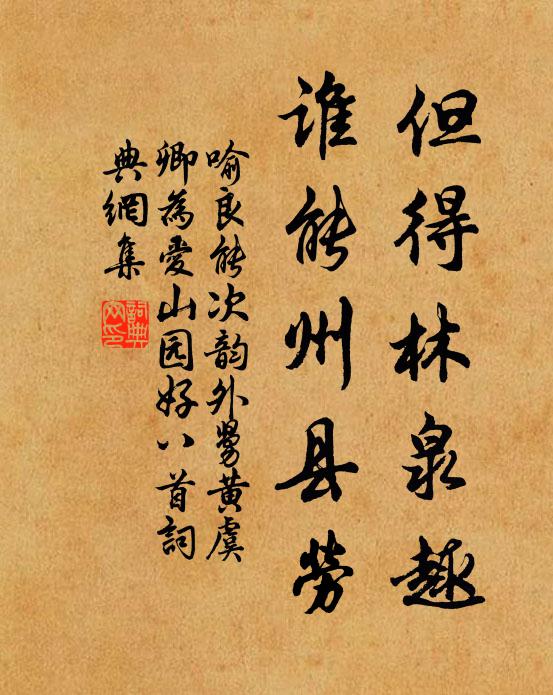 但得林泉趣
谁能州县勞
喻良能次韵外舅黄虞
卿為爱山园好八首詞
典網集
詞典网印